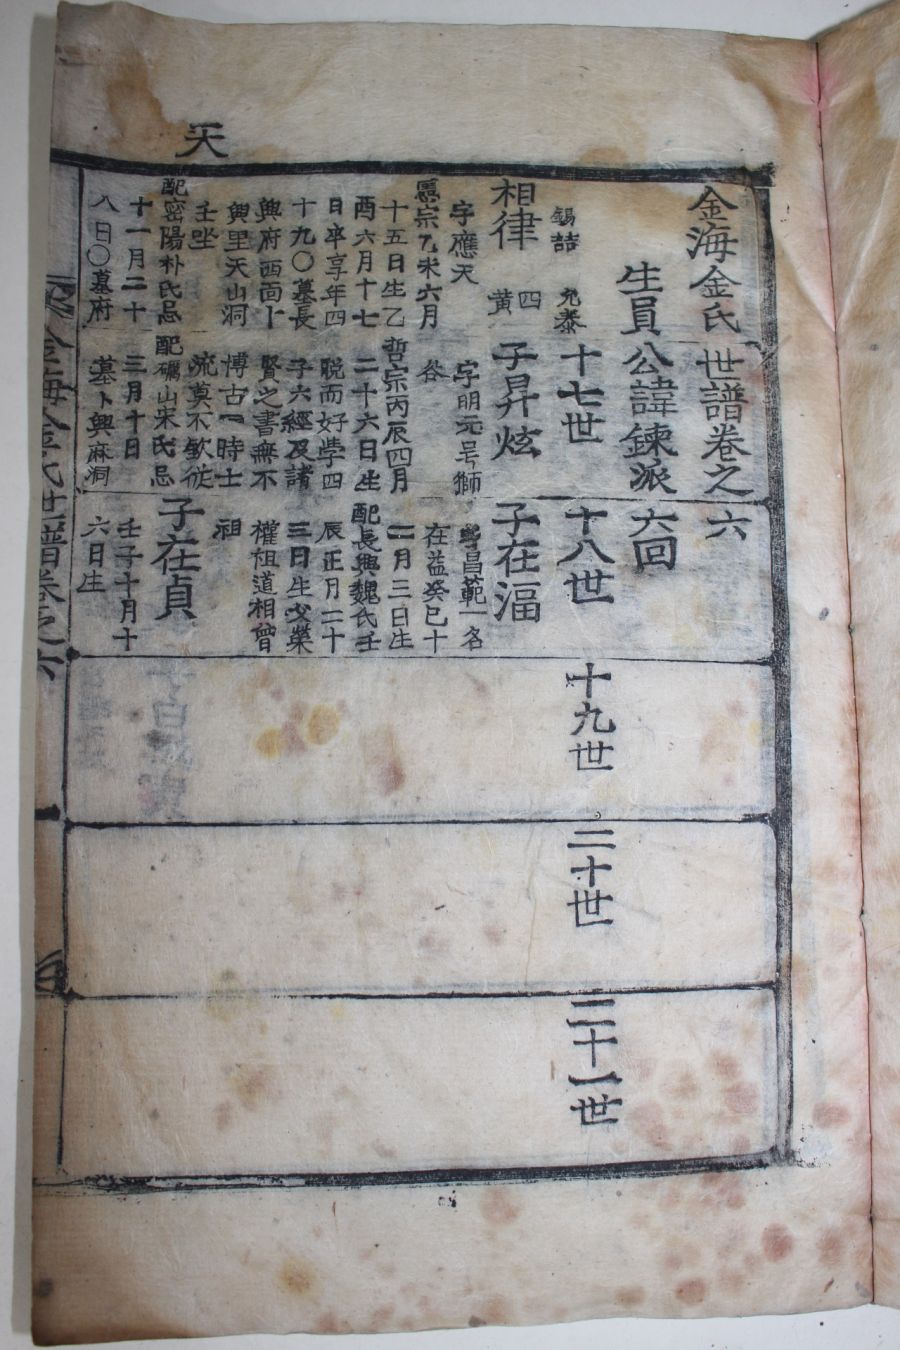 天
金海金氏世譜卷之六
生員公諱鍊派 六回
錫喆 允泰
十七世
十八世
十九世
二十世
二十一世
相律
四
黄
字應天
憲宗乙未六月
十五日生乙
酉六月十七
日卒享年四
十九〇墓長
興府西面卜
興里天山洞
壬坐
配密陽朴氏忌
十一月二十
八日〇墓府
子昇炫
字明元号獅
谷
哲宗丙辰四月
二十六日生
脱而好學四
子六經及諸
賢之書無不
博古一時士
流莫不欽従
配礪山宋氏忌
三月十日
墓卜興麻洞
子在湢
昌範 名
在益癸巳十
二月三日生
配長興魏氏壬
辰正月二十
三日生父榮
權祖道相曾
祖
子在貞
壬子十月十
六日生
金海金氏世譜卷之六